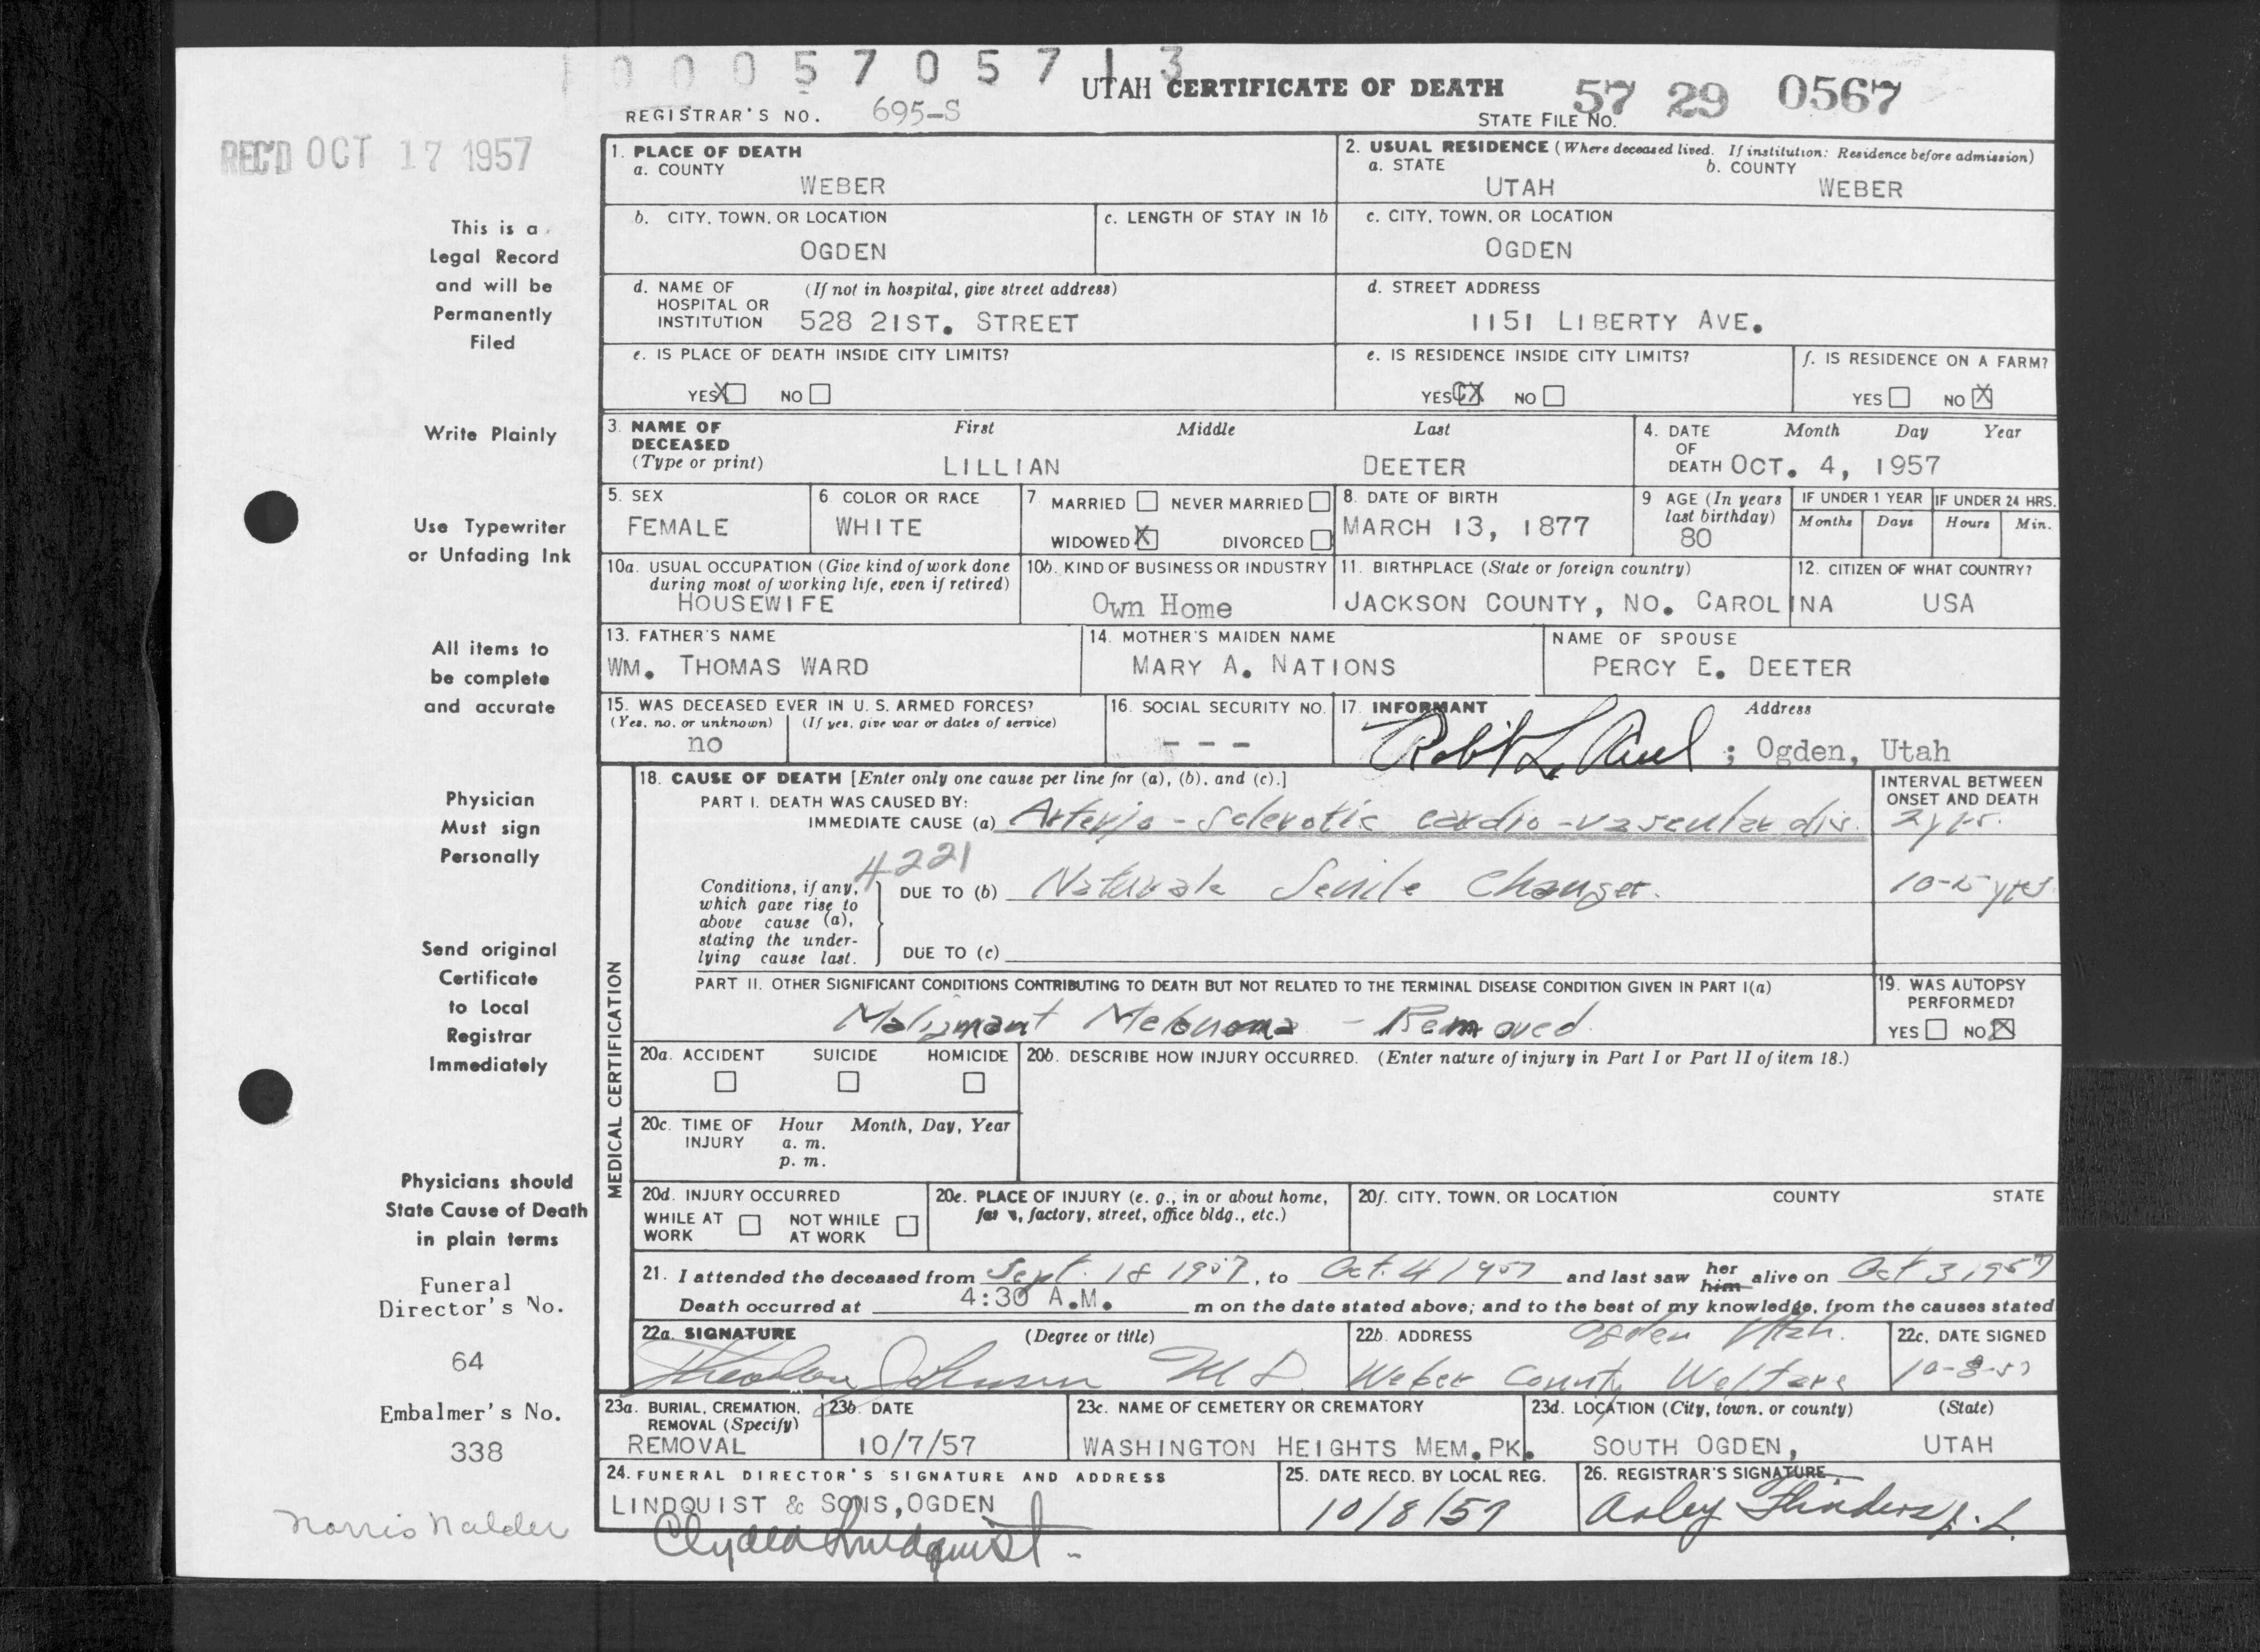 0 0 0 5 7 0 5 7 1 3
UTAH CERTIFICATE OF DEATH
57 29 0567
REGISTRAR'S NO. 695-S
STATE FILE NO.
REC'D OCT 17 1957
This is a
Legal Record
and will be
Permanently
Filed
Write Plainly
Use Typewriter
or Unfading Ink
All items to
be complete
and accurate
Physician
Must sign
Personally
Send original
Certificate
to Local
Registrar
Immediately
Physicians should
State Cause of Death
in plain terms
Funeral
Director's No.
64
Embalmer's No.
338
Norris Nalder
1. PLACE OF DEATH
a. COUNTY
WEBER
2. USUAL RESIDENCE (Where deceased lived. If institution: Residence before admission)
a. STATE b. COUNTY
UTAH WEBER
b. CITY, TOWN, OR LOCATION
OGDEN
c. LENGTH OF STAY IN 1b
c. CITY, TOWN, OR LOCATION
OGDEN
d. NAME OF (If not in hospital, give street address)
HOSPITAL OR
INSTITUTION 528 21ST. STREET
d. STREET ADDRESS
1151 LIBERTY AVE.
e. IS PLACE OF DEATH INSIDE CITY LIMITS?
YES X NO
e. IS RESIDENCE INSIDE CITY LIMITS?
YES X NO
f. IS RESIDENCE ON A FARM?
YES NO X
3. NAME OF DECEASED (Type or print)
First Middle Last
LILLIAN DEETER
4. DATE OF DEATH Month Day Year
OCT. 4, 1957
5. SEX
FEMALE
6 COLOR OR RACE
WHITE
7 MARRIED NEVER MARRIED
WIDOWED X DIVORCED
8. DATE OF BIRTH
MARCH 13, 1877
9 AGE (In years last birthday)
80
IF UNDER 1 YEAR IF UNDER 24 HRS.
Months Days Hours Min.
10a. USUAL OCCUPATION (Give kind of work done
during most of working life, even if retired)
HOUSEWIFE
10b. KIND OF BUSINESS OR INDUSTRY
Own Home
11. BIRTHPLACE (State or foreign country)
JACKSON COUNTY, NO. CAROLINA
12. CITIZEN OF WHAT COUNTRY?
USA
13. FATHER'S NAME
WM. THOMAS WARD
14. MOTHER'S MAIDEN NAME
MARY A. NATIONS
NAME OF SPOUSE
PERCY E. DEETER
15. WAS DECEASED EVER IN U. S. ARMED FORCES?
(Yes, no, or unknown) (If yes, give war or dates of service)
no
16. SOCIAL SECURITY NO.
- - -
17. INFORMANT Address
; Ogden, Utah
MEDICAL CERTIFICATION
18. CAUSE OF DEATH [Enter only one cause per line for (a), (b), and (c).]
INTERVAL BETWEEN
ONSET AND DEATH
PART I. DEATH WAS CAUSED BY:
IMMEDIATE CAUSE (a) Arterio-sclerotic cardio-vascular dis. 2 yrs.
4221
Conditions, if any,
which gave rise to
above cause (a),
stating the under-
lying cause last.
DUE TO (b) Senile Changes. yrs
DUE TO (c)
PART II. OTHER SIGNIFICANT CONDITIONS CONTRIBUTING TO DEATH BUT NOT RELATED TO THE TERMINAL DISEASE CONDITION GIVEN IN PART I(a)
Malignant Melanoma - Removed
19. WAS AUTOPSY
PERFORMED?
YES NO X
20a. ACCIDENT SUICIDE HOMICIDE
20b. DESCRIBE HOW INJURY OCCURRED. (Enter nature of injury in Part I or Part II of item 18.)
20c. TIME OF INJURY Hour Month, Day, Year
a. m.
p. m.
20d. INJURY OCCURRED
WHILE AT WORK NOT WHILE AT WORK
20e. PLACE OF INJURY (e. g., in or about home,
farm, factory, street, office bldg., etc.)
20f. CITY, TOWN, OR LOCATION COUNTY STATE
21. I attended the deceased from Sept. 18 1957, to Oct. 4 1957 and last saw her him alive on Oct 3, 1957
Death occurred at 4:30 A.M. m on the date stated above; and to the best of my knowledge, from the causes stated
22a. SIGNATURE (Degree or title)
Theodore Johnson M D.
22b. ADDRESS Ogden Utah.
Weber County Welfare
22c. DATE SIGNED
10-8-57
23a. BURIAL, CREMATION,
REMOVAL (Specify)
REMOVAL
23b. DATE
10/7/57
23c. NAME OF CEMETERY OR CREMATORY
WASHINGTON HEIGHTS MEM. PK.
23d. LOCATION (City, town, or county) (State)
SOUTH OGDEN, UTAH
24. FUNERAL DIRECTOR'S SIGNATURE AND ADDRESS
LINDQUIST & SONS, OGDEN
Lindquist
25. DATE RECD. BY LOCAL REG.
10/8/57
26. REGISTRAR'S SIGNATURE
Arley Flinders